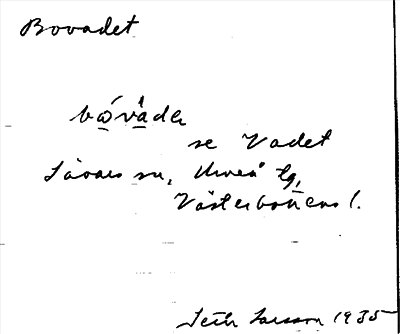 Bovadet
bωʹvåde
se Vadet
Sävars sn, Umeå tg,
Västerbottens l.
Seth Larsson 1935